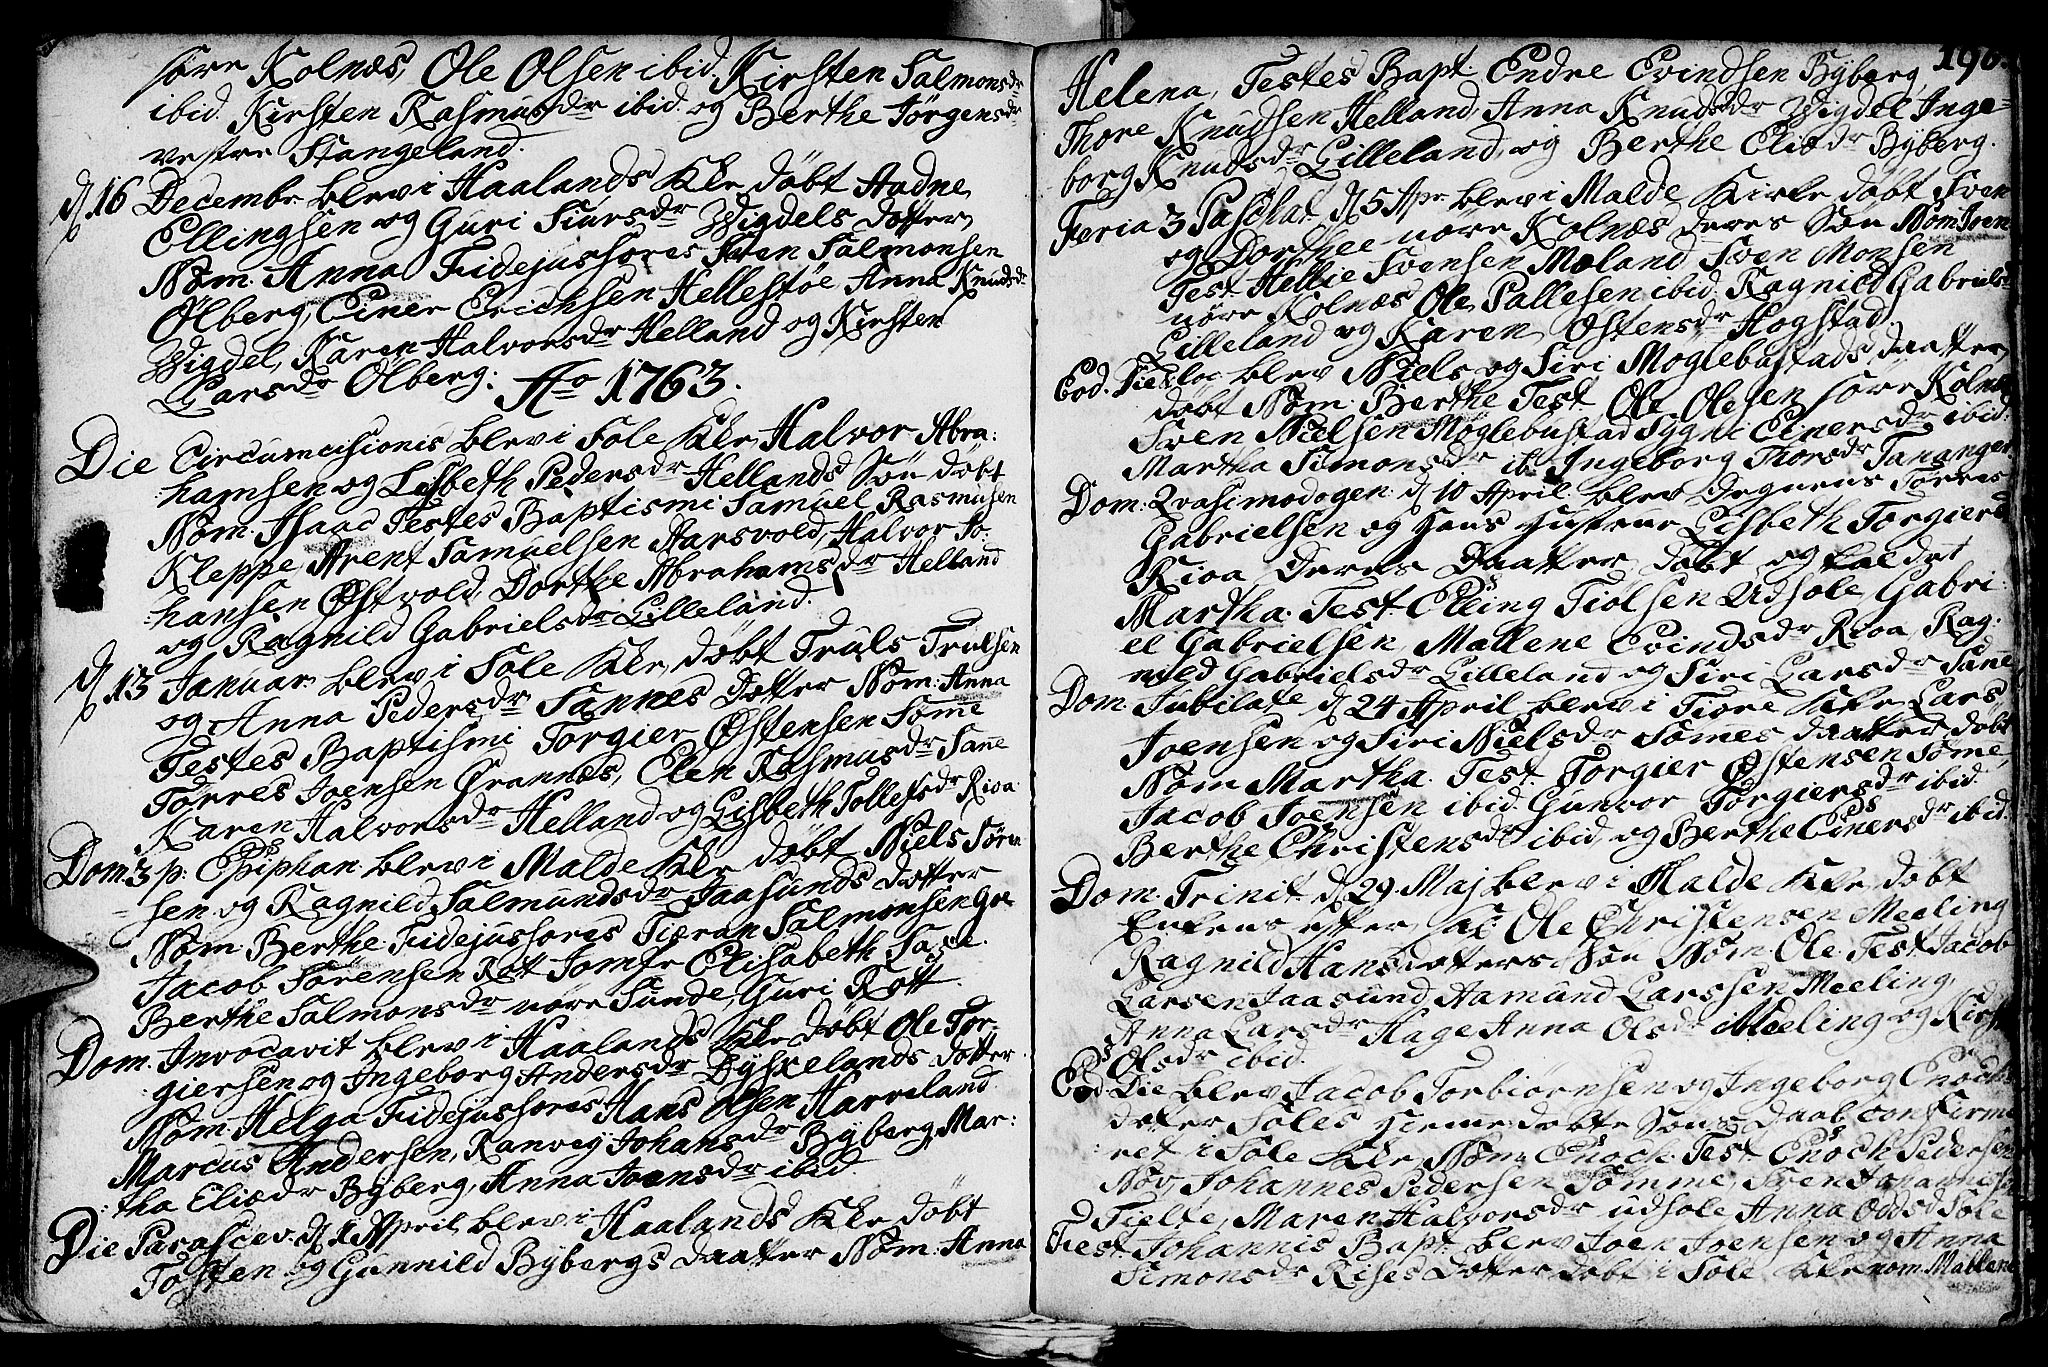 søre Kolnæs, Ole Olsen ibid. Kirsten Salmonsdr
ibid. Kirsten Rasmusdr ibid. og Berthe Jörgensdr
vestre Stangeland.
d 16 Decembr blev i Haalands Kke döbt Aadne
Ellingsen og Guri Siursdr Wigdels dotter
Nom. Anna Fidejussores Sven Salmonsen
Ölberg, Einer Erichsen Hellestöe Anna Knudsdr
Wigdel, Karen Halvorsdr Helland og Kirsten
Larsdr Ölberg.
Ao 1763.
Die Circumcisionis blev i Sole Kke Halvor Abra:
hamsen og Lisbeth Pedersdr Hellands Sön döbt
Nom. Isaac Testes Baptismi Samuel Rasmusen
Kleppe, Arent Samuelsen Aarsvold, Halvor Jo:
hansen Østvold, Dorthe Abrahamsdr Helland
og Ragnild Gabrielsdr Lilleland.
d 13 Januar. blev i Sole Kke döbt Truls Trulsen
og Anna Pedersdr Sannes dotter Nom. Anna
Testes Baptismi Torgier Østensen Somme
Torres Joensen Grannæs, Elen Rasmusdr Sanne
Karen Halvorsdr Helland og Lisbeth Tollefsdr Rioa.
Dom. 3 p. Epiphan. blev i Malde Kke döbt Niels Sören
sen og Ragnild Salmundsdr Jaasunds dotter
Nom. Berthe. Fidejussores Tieran Salmonsen Goe
Jacob Sörensen Rott Jomfr Elisabeth Sasse.
Berthe Salmonsdr nöre Sunde, Guri Rott.
Dom. Invocavit blev i Haalands Kke döbt Ole Tor-
giersen og Ingeborg Andersdr Byskelands dotter
Nom. Helga Fidejussores Hans Olsen Harveland
Marcus Andersen, Ranveig Johansdr Byberg, Mar:
tha Eliædr Byberg, Anna Joensdr ibid
Die Parascev. d 1 April. blev i Haalands Kke döbt
Tosten og Gunnild Bybergs daatter Nom. Anna
196.
Helena, Testes Bapt: Endre Evindsen Byberg,
Thore Knudsen Helland, Anna Knudsdr Wigdel, Inge-
borg Knudsdr Lilleland, og Berthe Eliædr Byberg.
Feria 3 Paschat. d 5 Apr. blev i Malde Kirke döbt Sven
og Dorthee nöre Kolnæs deres Sön Nom. Joen
Test. Hellie Svensen Meland, Sven Monsen
nöre Kolnæs Ole Pallesen ibid. Ragnild Gabrielsdr
Lilleland og Karen Østensdr Hogstad.
Eod. Die blev Niels og Siri Moglebustads daatter
döbt Nom. Berthe Test. Ole Olesen söre Kolnæs
Sven Nielsen Moglebustad, Sygni Einersdr ibid.
Martha Simonsdr ib. Ingeborg Thorsdr Tananger
Dom: Qvasimodogen. d 10 April. blev Degnens Torres
Gabrielsen og hans Hustrue Lisbeth Torgiersdr
Rioa Deres Daatter döbt og kaldet
Martha. Test. Elling Tiolsen Udsole, Gabri:
el Gabrielsen, Mallene Evindsdr Rioa, Rag-
nild Gabrielsdr Lilleland og Siri Larsdr Sanne
Dom. Jubilate d 24 April blev i Tiore Kke Lars
Joensen og Siri Nielsdr Sömes daatter döbt
Nom Martha. Test. Torgier Østensen Söme,
Jacob Joensen ibid. Gunvor Torgiersdr ibid
Berthe Christensdr ibid. og Berthe Einersdr ibid.
Dom. Trinit. d 29 Maj blev i Malde Kke döbt
Enkens efter Ole Christensen Meeling
Ragnild Hansdotters Sön Nom. Ole. Test. Jacob
Larsen Jaasund Aamund Larssen Meeling,
Anna Larsdr Hage Anna Olsdr Meeling og Kirst
Olsdr ibid.
Eod Die blev Jacob Torbiörnsen og Ingeborg Enochs
dotter Soles hiemmedobte Söns Daab confirme
ret i Sole Kke Nom. Enoch. Test. Enoch Pedersen
Nov, Johannes Pedersen Sömme, Sven Johannesen
Tielte, Maren Halvorsdr udsole Anna Oddsdr Sole
Fest. Johannis Bapt. blev Joen Joensen og Anna
Simonsdr Rises Dotter döbt i Sole Kke nom. Mallene